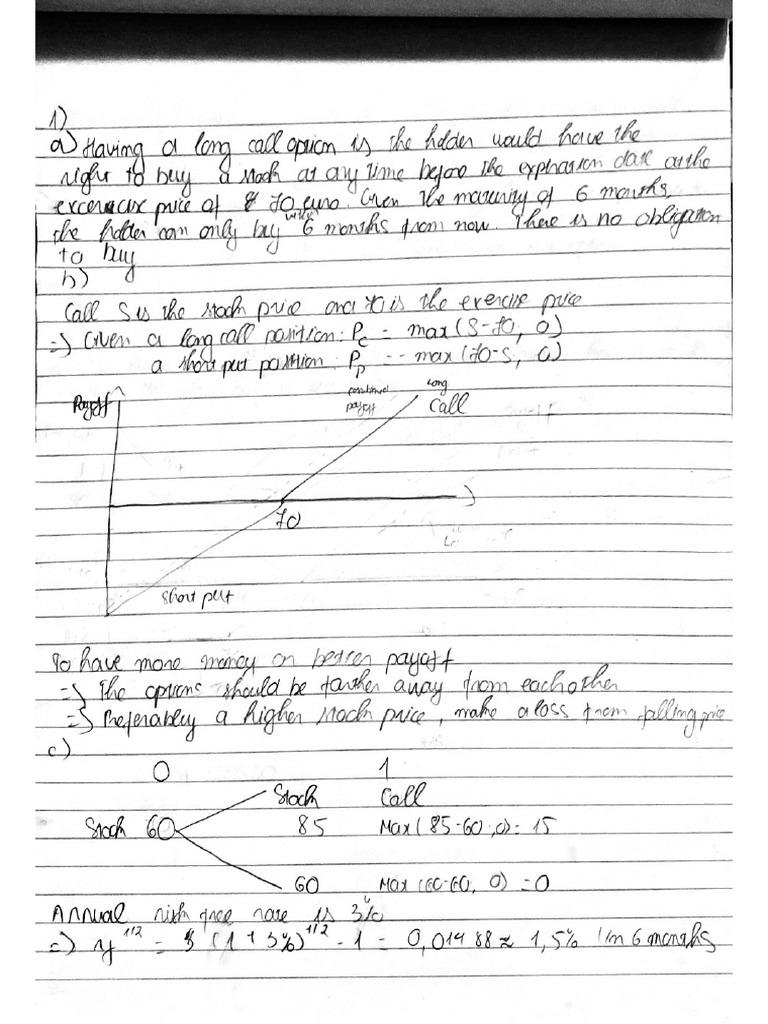 1)
a) Having a long call option is the holder would have the
right to buy a stock at any time before the expiration date at the
excercise price of 70 euro. Given the maturity of 6 months,
the holder can only buy until 6 months from now. There is no obligation
to buy
b)
Call S is the stock price and 70 is the exercise price
=> Given a long call position: Pc = max (S-70, 0)
a short put position: Pp = - max (70-S, 0)
Payoff
combined
payoff
Long
Call
70
Short put
To have more money or better payoff
=> The options should be farther away from each other
=> Preferably a higher stock price, make a loss from falling price
c)
0 1
Stock Call
Stock 60 85 Max (85-60, 0) = 15
60 Max (60-60, 0) = 0
Annual risk free rate is 3%
=> y^1/2 = (1 + 3%)^1/2 - 1 = 0,01488 ≈ 1,5% in 6 months